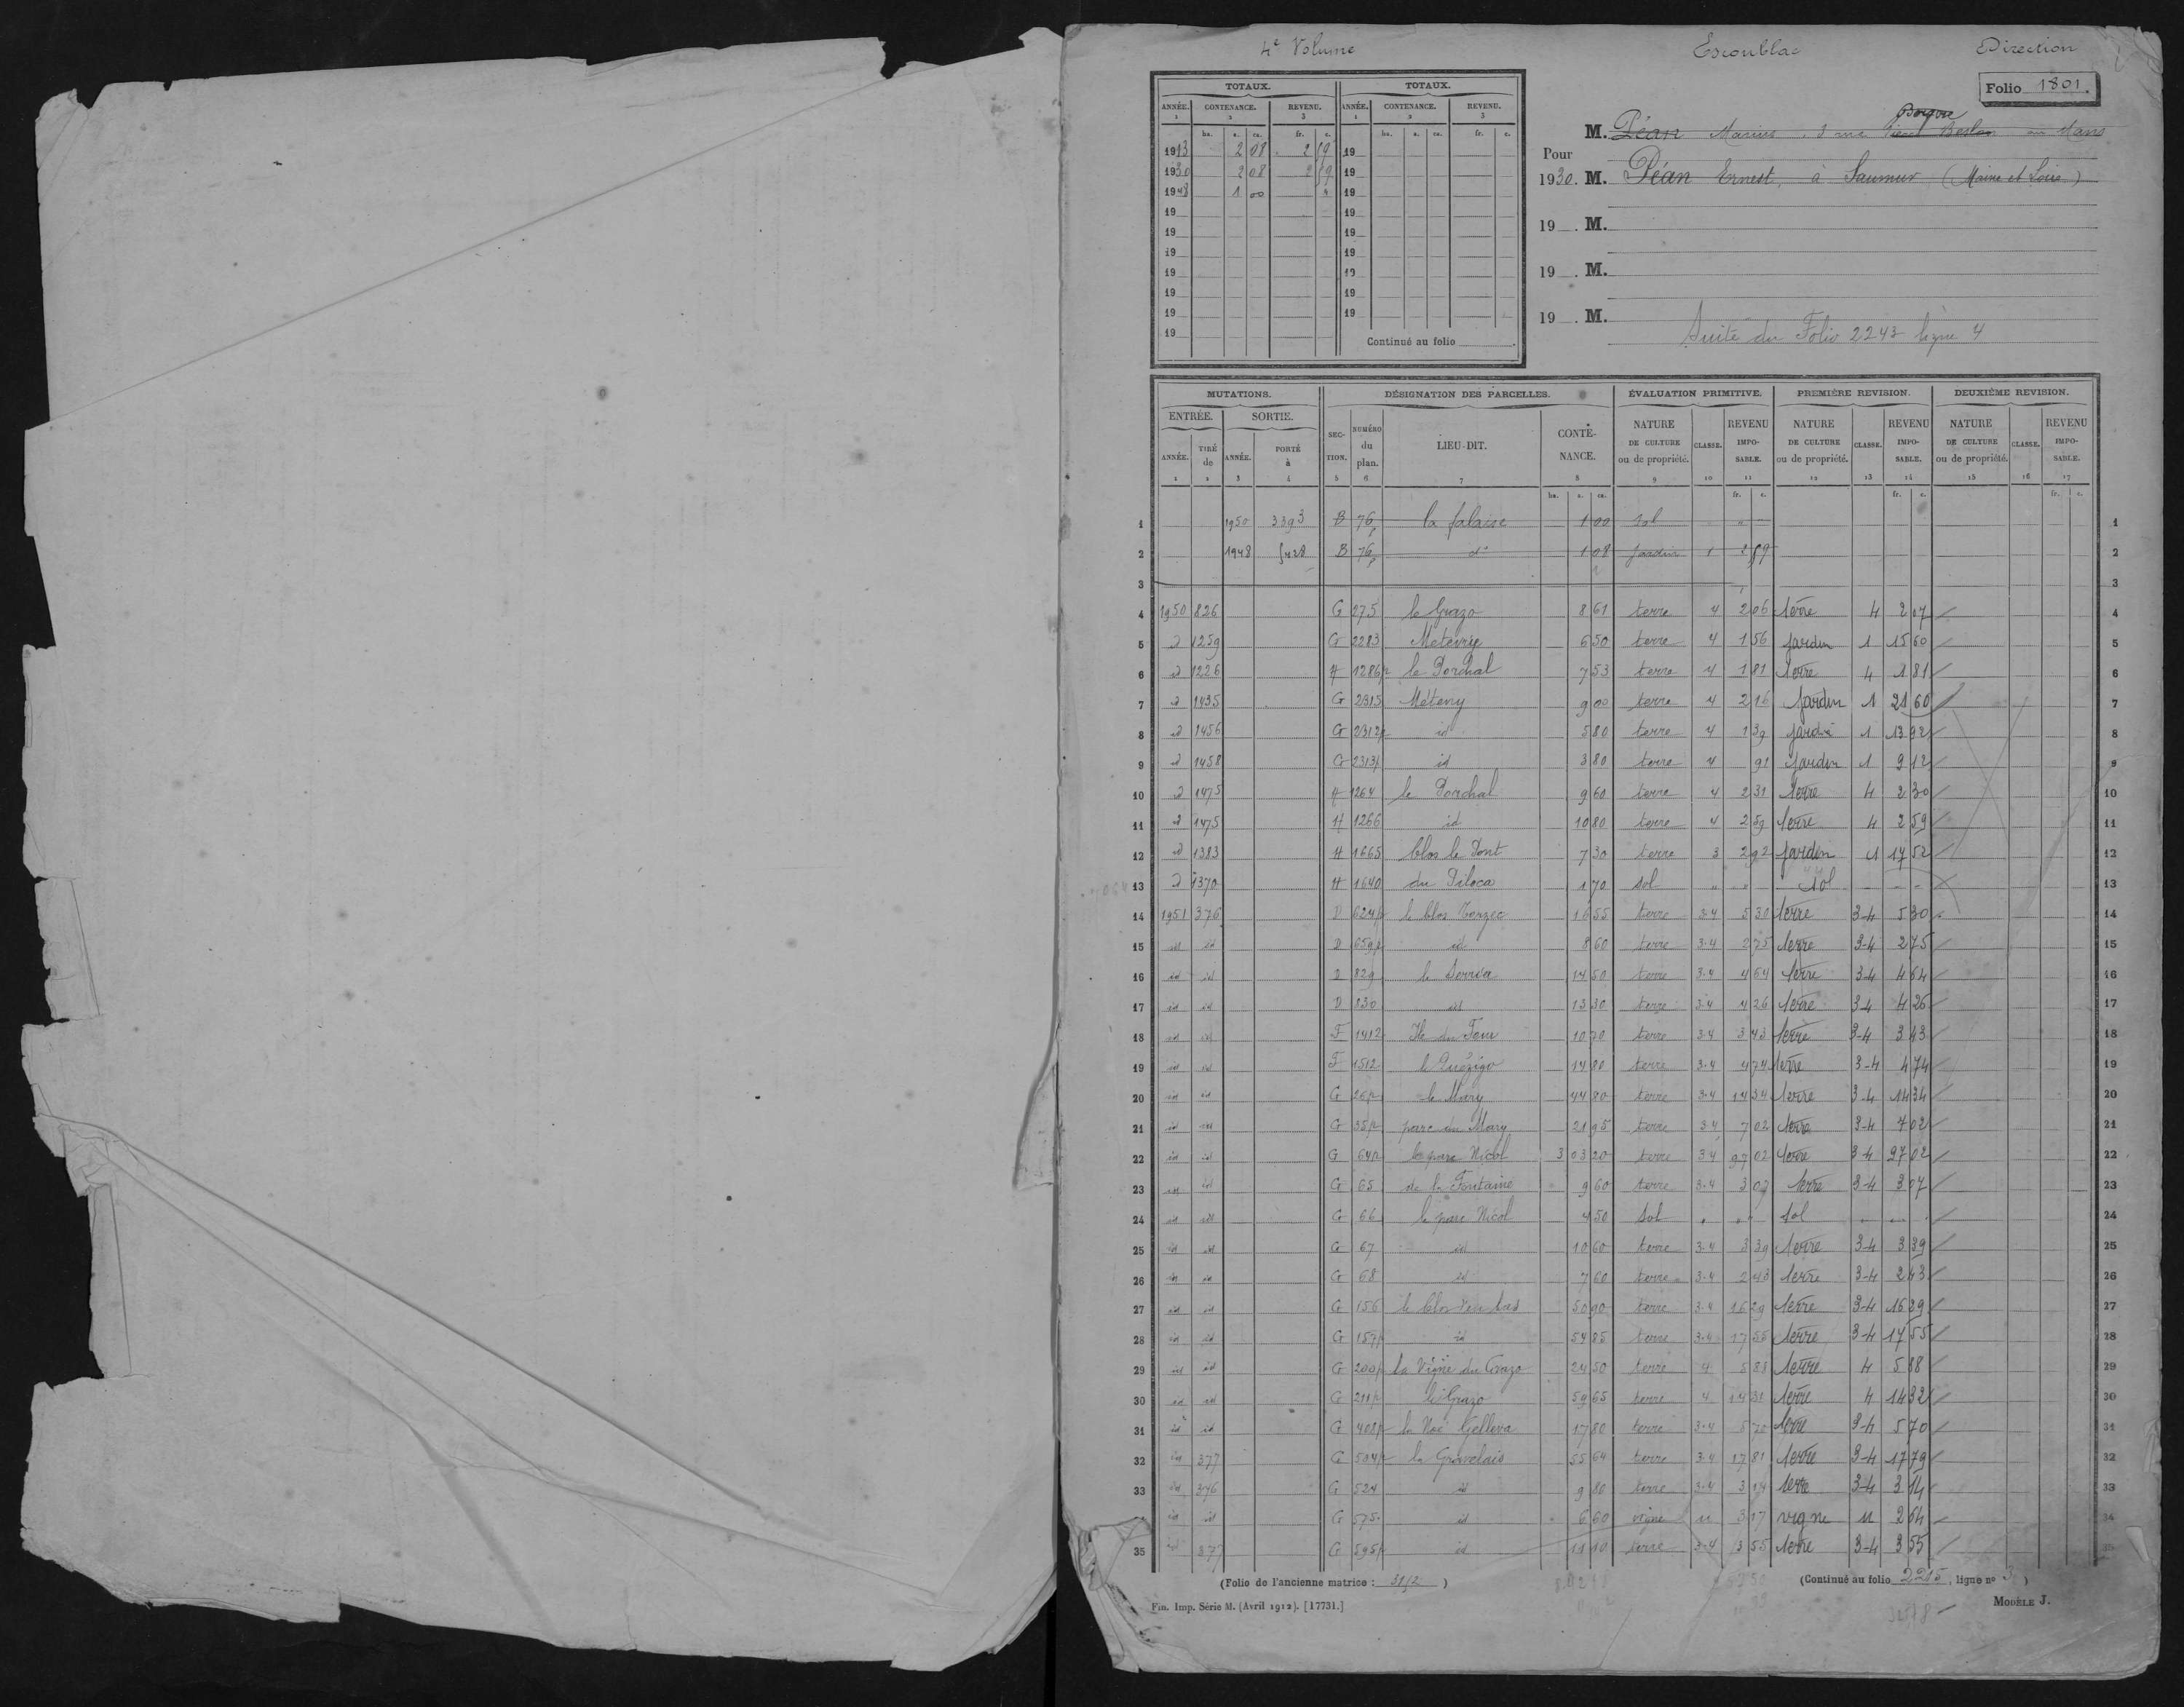 4e Volume Escoublac Direction
Folio 1801.
TOTAUX. TOTAUX.
ANNÉE. CONTENANCE. REVENU. ANNÉE. CONTENANCE. REVENU.
1 2 3 1 2 3
ha. a. ca. fr. c. ha. a. ca. fr. c.
1913 2 08 2 59 19
1930 2 08 2 59 19
1948 1 00 19
19 19
19 19
19 19
19 19
19 19
19 19
19
Continué au folio
M. Péan Marius, 3 rue au Mans
Pour
1930. M. Péan Ernest, à Saumur (Maine et Loire)
19 . M.
19 . M.
19 . M.
Suite du Folio 2243 ligne 4
MUTATIONS. DÉSIGNATION DES PARCELLES. ÉVALUATION PRIMITIVE. PREMIÈRE REVISION. DEUXIÈME REVISION.
ENTRÉE. SORTIE.
ANNÉE. TIRÉ de ANNÉE. PORTÉ à SECTION. NUMÉRO du plan. LIEU-DIT. CONTENANCE. NATURE DE CULTURE ou de propriété. CLASSE. REVENU IMPOSABLE. NATURE DE CULTURE ou de propriété. CLASSE. REVENU IMPOSABLE. NATURE DE CULTURE ou de propriété. CLASSE. REVENU IMPOSABLE.
1 2 3 4 5 6 7 8 9 10 11 12 13 14 15 16 17
ha. a. ca. fr. c. fr. c. fr. c.
1 1950 3393 B 76p la falaise 1 00 sol " 1
2 1948 B 76p do 1 08 jardin 1 2 59 2
3 3
4 1950 826 G 275 le Grazo 8 61 terre 4 2 06 terre 4 2 07 4
5 d 1259 G 2283 6 50 terre 4 1 56 jardin 1 15 60 5
6 d 1226 H 1286p le Porchal 7 53 terre 4 1 81 terre 4 1 81 6
7 d 1435 G 2315 9 00 terre 4 2 16 jardin 1 21 60 7
8 d 1456 G 2312p id 5 80 terre 4 1 39 jardin 1 13 92 8
9 d 1458 G 2313p id 3 80 terre 4 91 jardin 1 9 12 9
10 d 1475 H 1264 le Porchal 9 60 terre 4 2 31 terre 4 2 30 10
11 d 1475 H 1266 id 10 80 terre 4 2 59 terre 4 2 59 11
12 d 1383 H 1665 Clos le Pont 7 30 terre 3 2 92 jardin 1 17 52 12
13 d 1370 H 1640 du Piloca 1 70 sol " " sol - - - 13
14 1951 376 D 624p le Clos 16 55 terre 3-4 5 30 terre 3-4 5 30 14
15 id id D 659p id 8 60 terre 3-4 2 75 terre 3-4 2 75 15
16 id id D 829 14 50 terre 3-4 4 64 terre 3-4 4 64 16
17 id id D 830 id 13 30 terre 3-4 4 26 terre 3-4 4 26 17
18 id id F 1412 10 70 terre 3-4 3 43 terre 3-4 3 43 18
19 id id F 1512 14 80 terre 3-4 4 74 terre 3-4 4 74 19
20 id id G 26p le Mary 44 80 terre 3-4 14 34 terre 3-4 14 34 20
21 id id G 35p parc du Mary 21 95 terre 3-4 7 02 terre 3-4 7 02 21
22 id id G 64p le parc Nicol 3 03 20 terre 3-4 97 02 terre 3-4 97 02 22
23 id id G 65 de la Fontaine 9 60 terre 3-4 3 07 terre 3-4 3 07 23
24 id id G 66 le parc Nicol 4 50 sol " " " sol 24
25 id id G 67 id 10 60 terre 3-4 3 39 terre 3-4 3 39 25
26 id id G 68 id 7 60 terre 3-4 2 43 terre 3-4 2 43 26
27 id id G 156 le Clos 50 90 terre 3-4 16 29 terre 3-4 16 29 27
28 id id G 157p id 54 85 terre 3-4 17 55 terre 3-4 17 55 28
29 id id G 200p la Vigne du Grazo 24 50 terre 4 5 88 terre 4 5 88 29
30 id id G 211p le Grazo 59 65 terre 4 14 31 terre 4 14 32 30
31 id id G 408p la Noë 17 80 terre 3-4 5 70 terre 3-4 5 70 31
32 id 377 G 504p la Gravelais 55 64 terre 3-4 17 81 terre 3-4 17 79 32
33 id 376 G 524 id 9 80 terre 3-4 3 14 terre 3-4 3 14 33
id id G 575 id 6 60 vigne u 3 17 vigne u 2 64 34
35 id 377 G 595p id 11 10 terre 3-4 3 55 terre 3-4 3 55 35
(Folio de l'ancienne matrice : ) (Continué au folio 2215, ligne no 3 )
Fin. Imp. Série M. (Avril 1912). [17731.] MODÈLE J.